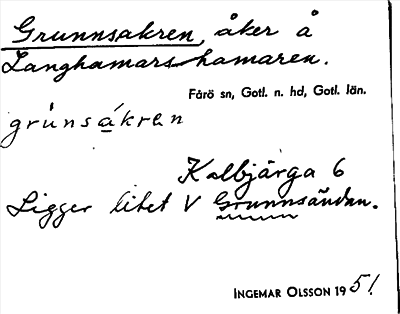 Grunnsakren, åker å
Langhamars-hamaren.
Fårö sn, Gotl. n. hd, Gotl. län.
grúnsákren
Kalbjärga 6
Ligger litet V Grunnsäudan.
INGEMAR OLSSON 1951.